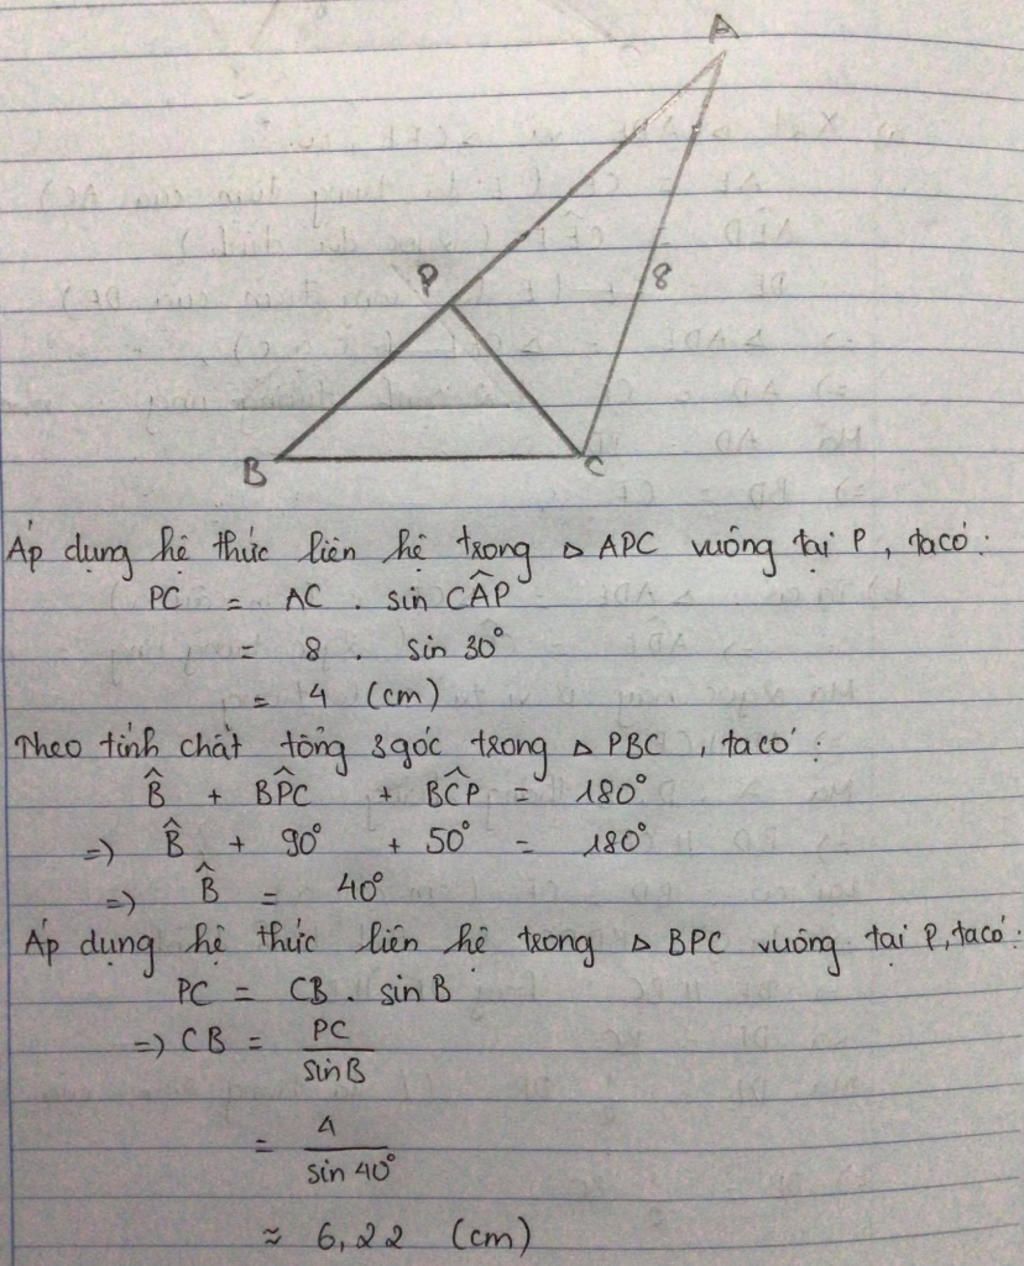 A
P
8
B
C
Áp dụng hệ thức liên hệ trong △ APC vuông tại P, ta có:
PC = AC . sin CÂP
= 8 . sin 30°
= 4 (cm)
Theo tính chất tổng 3 góc trong △ PBC, ta có:
B̂ + BP̂C + BĈP = 180°
=> B̂ + 90° + 50° = 180°
=> B̂ = 40°
Áp dụng hệ thức liên hệ trong △ BPC vuông tại P, ta có:
PC = CB . sin B
=> CB = PC / sin B
= 4 / sin 40°
≈ 6,22 (cm)